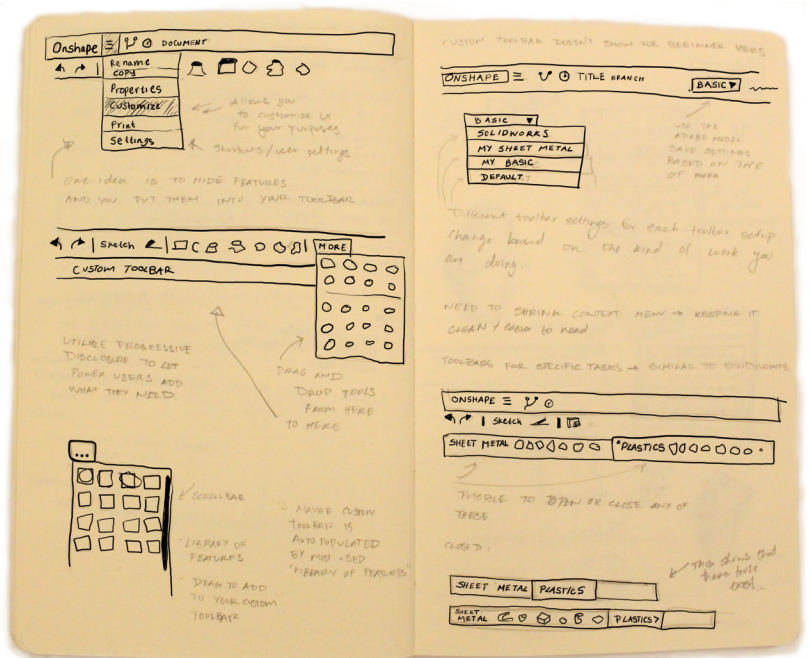 Onshape
DOCUMENT
Rename
COPY
Properties
Customize
Print
Settings
Allows you
to customize UI
for your purposes
Shortcuts/user settings
One idea is to HIDE FEATURES
AND YOU PUT THEM INTO YOUR TOOLBAR
Sketch
MORE
CUSTOM TOOLBAR
UTILIZE PROGRESSIVE
DISCLOSURE TO LET
POWER USERS ADD
WHAT THEY NEED
DRAG AND
DROP TOOLS
FROM HERE
TO HERE
...
SCROLLBAR
LIBRARY OF
FEATURES
- DRAG TO ADD
TO YOUR CUSTOM
TOOLBAR
- MAYBE CUSTOM
TOOLBAR IS
AUTO POPULATED
BY MOST USED
"LIBRARY OF FEATURES"
CUSTOM TOOLBAR DOESN'T SHOW FOR BEGINNER USERS
ONSHAPE
TITLE BRANCH
BASIC
BASIC
SOLIDWORKS
MY SHEET METAL
MY BASIC
DEFAULT
USE THE
ADOBE MODEL
SAVE SETTINGS
BASED ON TYPE
OF WORK
Different toolbar settings for each toolbar setup
change based on the kind of work you
are doing.
NEED TO SHRINK CONTEXT MENU → KEEPING IT
CLEAN + easier to read
TOOLBARS FOR SPECIFIC TASKS → SIMILAR TO SOLIDWORKS
ONSHAPE
Sketch
SHEET METAL
PLASTICS
TO OPEN OR CLOSE ANY OF
THESE
CLOSED:
This shows that
these tools
exist...
SHEET METAL
PLASTICS
SHEET
METAL
PLASTICS>